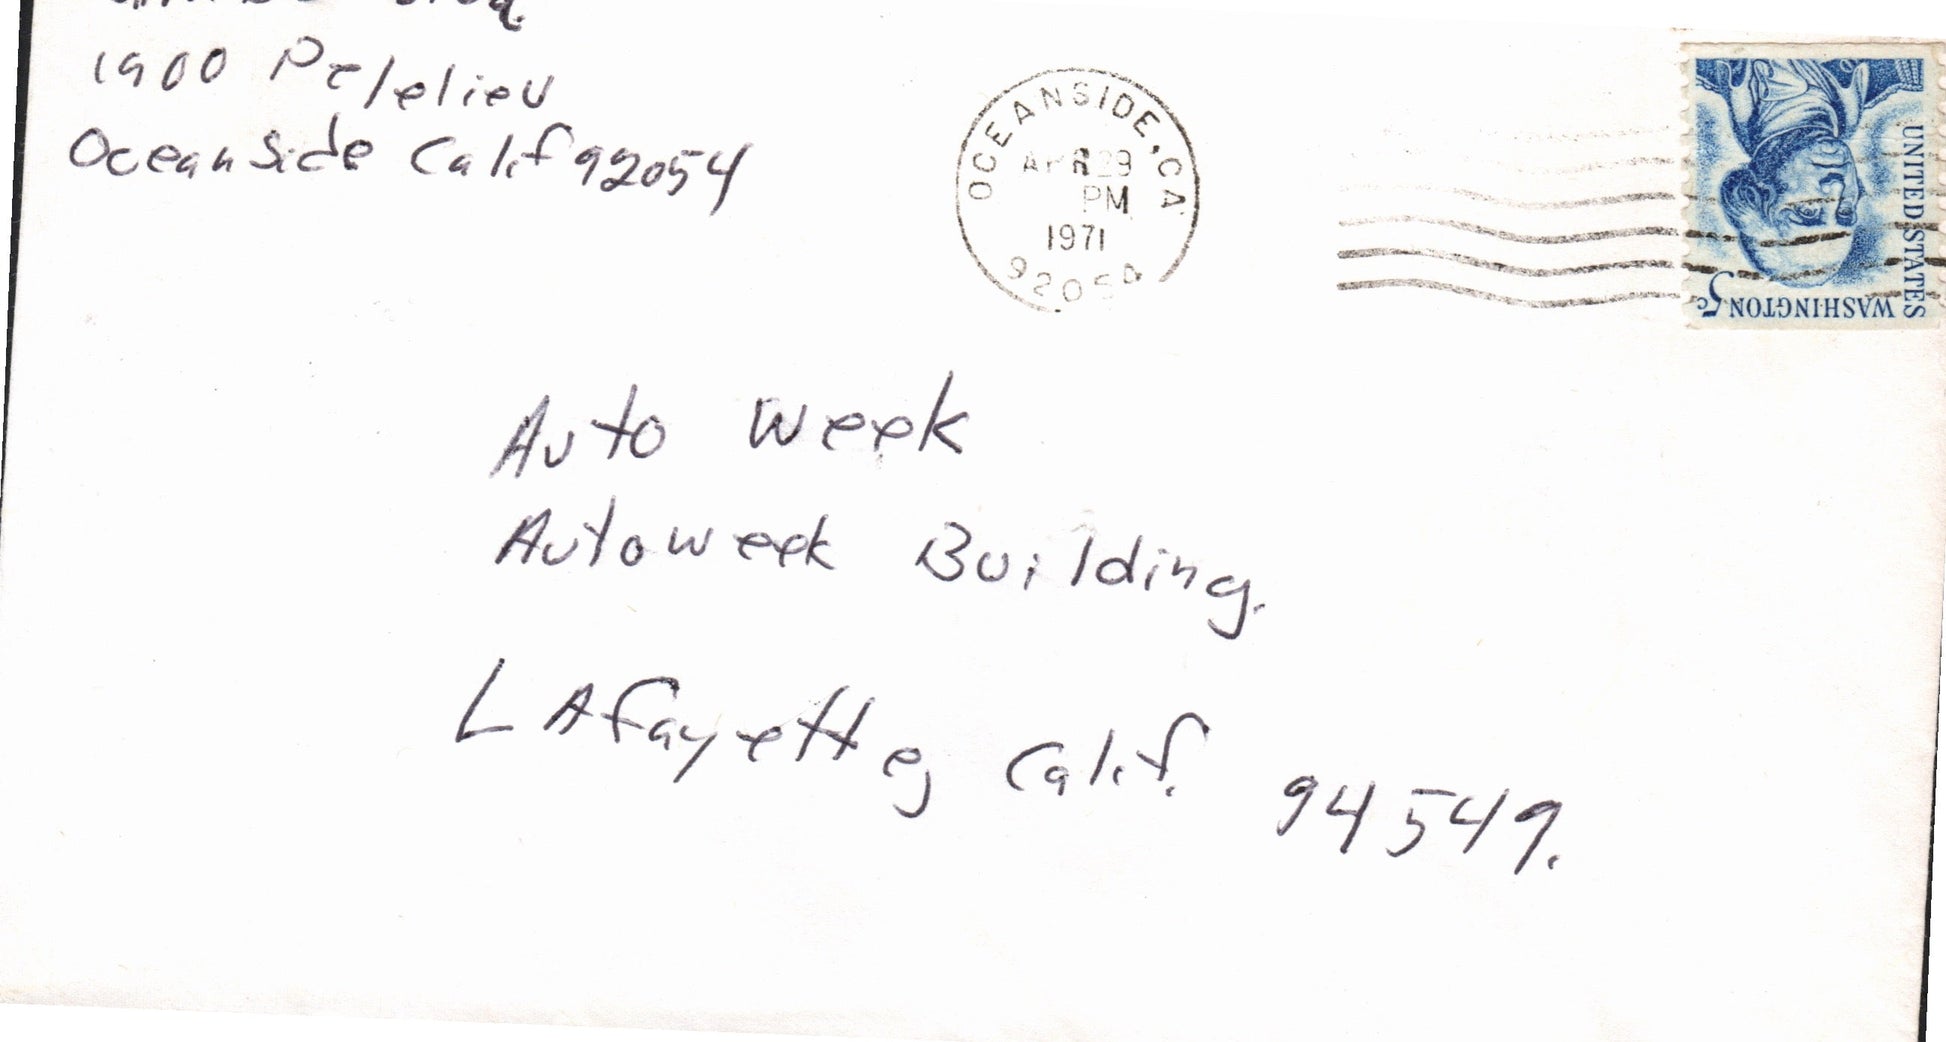 1900 Pelelieu
Oceanside Calif 92054
OCEANSIDE, CA
APR 29
PM
1971
92054
UNITED STATES
WASHINGTON 5c
Auto Week
Autoweek Building.
LAfayette, Calif. 94549.